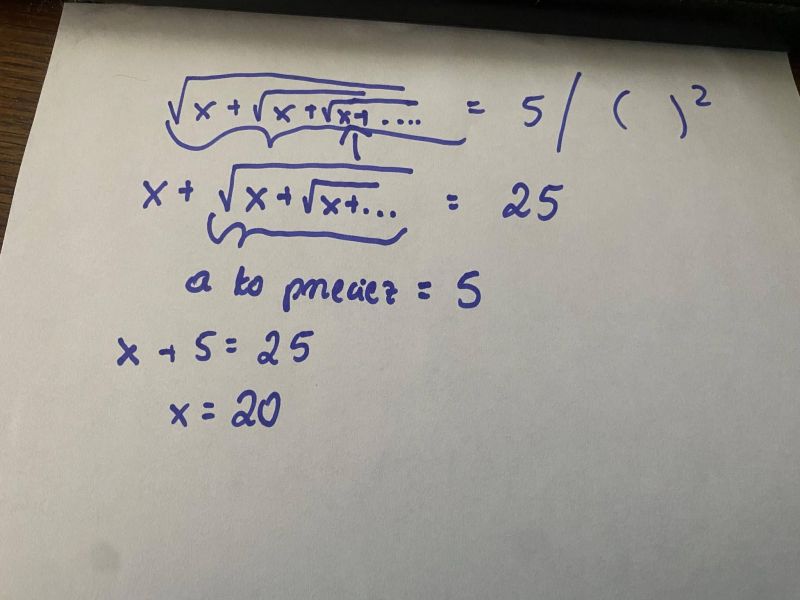 √(x + √(x + √(x + .... = 5 / ( )²
x + √(x + √(x + ... = 25
a to przecież = 5
x + 5 = 25
x = 20